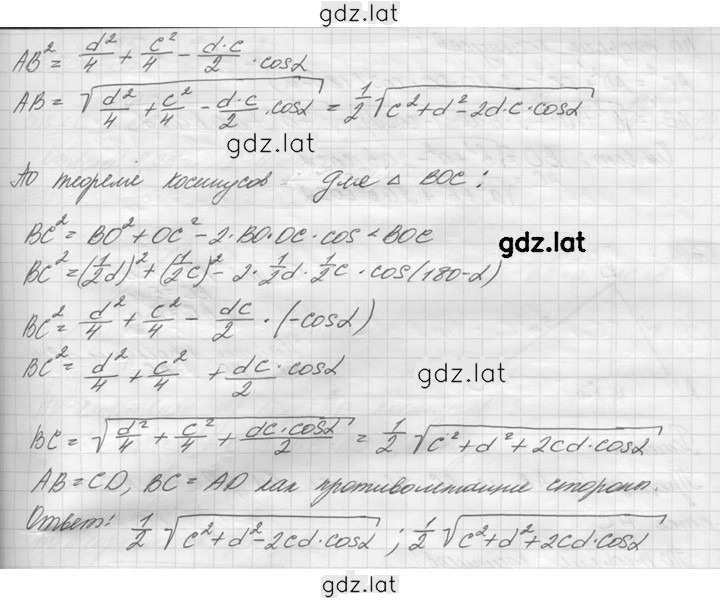 gdz.lat
AB² = d²/4 + c²/4 - d·c/2 · cosα
AB = √(d²/4 + c²/4 - d·c/2 · cosα) = 1/2 √(c²+d²-2d·c·cosα)
gdz.lat
По теореме косинусов для △ BOC:
BC² = BO² + OC² - 2·BO·OC·cos∠BOC
gdz.lat
BC² = (1/2 d)² + (1/2 c)² - 2·1/2 d·1/2 c · cos(180-α)
BC² = d²/4 + c²/4 - dc/2 · (-cosα)
BC² = d²/4 + c²/4 + dc/2 · cosα
gdz.lat
BC = √(d²/4 + c²/4 + dc·cosα/2) = 1/2 √(c²+d²+2cd·cosα)
AB=CD, BC=AD как противолежащие стороны.
Ответ: 1/2 √(c²+d²-2cd·cosα) ; 1/2 √(c²+d²+2cd·cosα)
gdz.lat